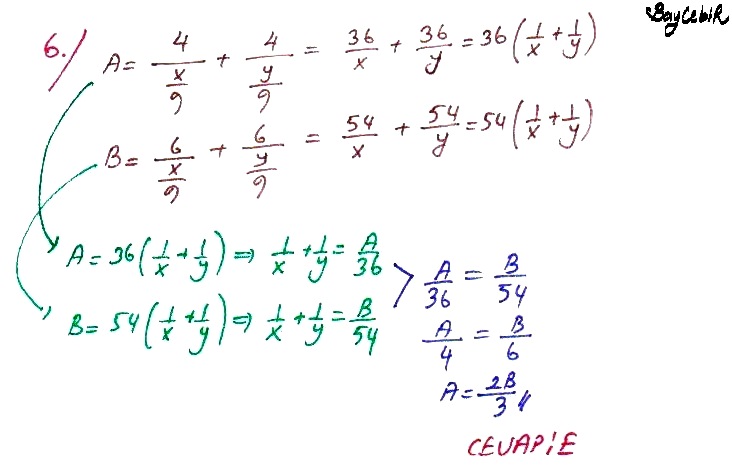 BayCebiR
6.) A = 4/(x/9) + 4/(y/9) = 36/x + 36/y = 36(1/x + 1/y)
B = 6/(x/9) + 6/(y/9) = 54/x + 54/y = 54(1/x + 1/y)
A = 36(1/x + 1/y) ⇒ 1/x + 1/y = A/36
B = 54(1/x + 1/y) ⇒ 1/x + 1/y = B/54
A/36 = B/54
A/4 = B/6
A = 2B/3 //
CEVAP: E